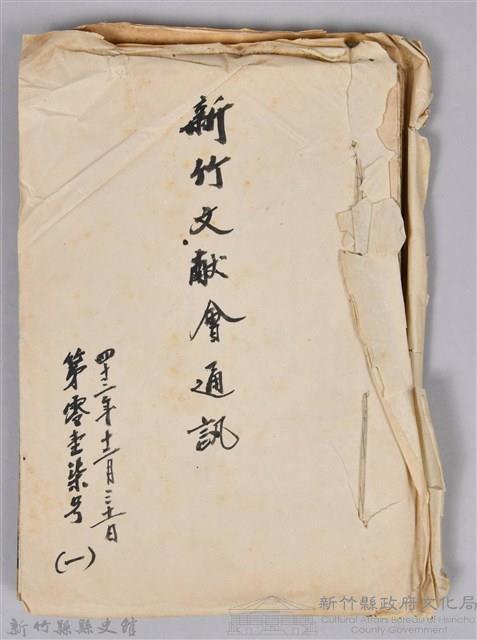 新竹文献會通訊
四十二年十二月三十日
第零壹柒号
(一)
新竹縣縣史館
新竹縣政府文化局
Cultural Affairs Bureau of Hsinchu
County Government